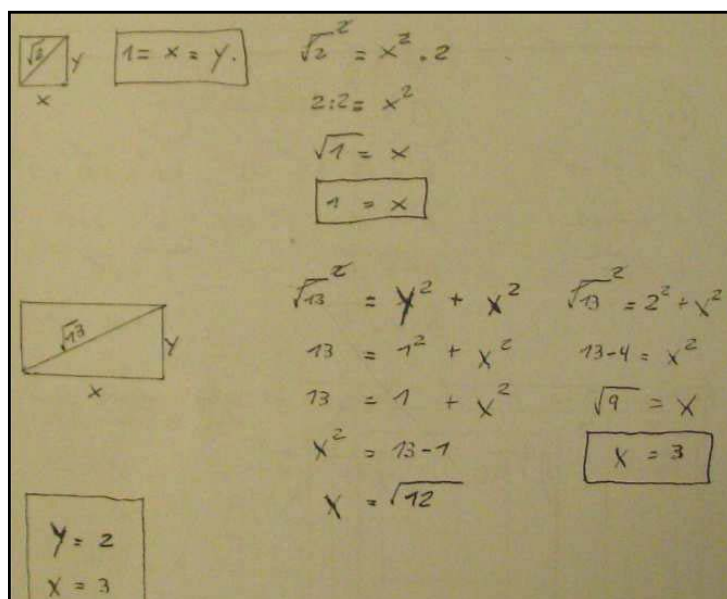 √2 y
x
1 = x = y.
√2² = x² · 2
2:2 = x²
√1 = x
1 = x
√13 y
x
√13² = y² + x²
13 = 1² + x²
13 = 1 + x²
x² = 13-1
x = √12
√13² = 2² + x²
13-4 = x²
√9 = x
x = 3
y = 2
x = 3